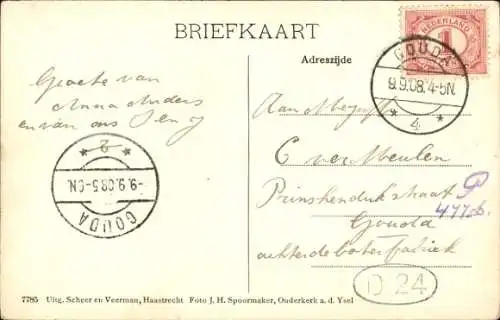 BRIEFKAART
Adreszijde
NEDERLAND
1
GOUDA
9.9.08.4-5N.
* 4 *
Groete van
Anna
en van ons
* 2 *
-9.9.08 5-6N.
GOUDA
Aan
C ver Meulen
Prins hendrikstraat
Gouda
achter de boterfabriek
P
D 24
7785 Uitg. Scheer en Veerman, Haastrecht Foto J. H. Spoormaker, Ouderkerk a. d. Ysel